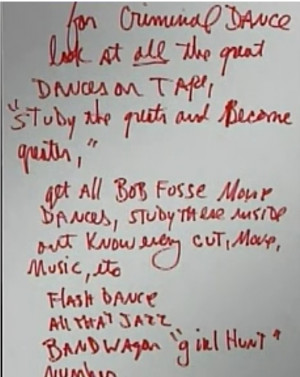 for Criminal DANCE
look at all the great
DANCES on TAPE,
"STudy the greats and Become
greater,"
get All BOB FOSSE Movie
DANCES, STUDY THESE inside
out Know every CUT, Move,
Music, etc
FLASH DANCE
All THAT JAZZ
BAND WAGON "girl HUNT"
Number